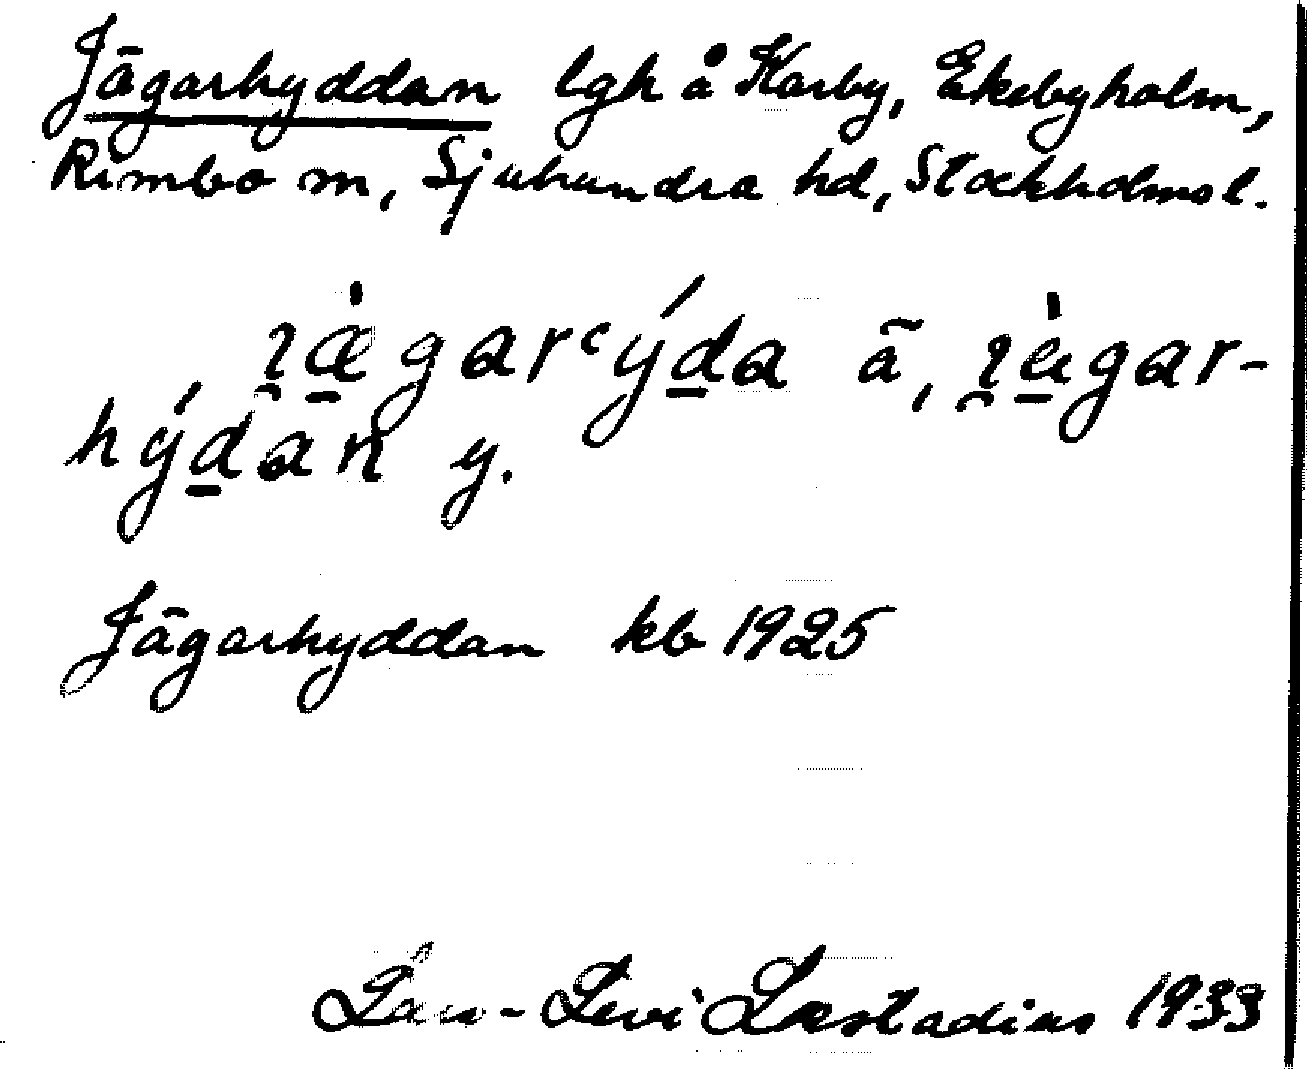 Jägarhyddan lgh å Karby, Ekebyholm,
Rimbo sn, Sjuhundra hd, Stockholms l.
ɿæ̀garʿýda ä, ɿæ̀gar-
hýdan y.
Jägarhyddan kb 1925
Lars-Levi Læstadius 1933